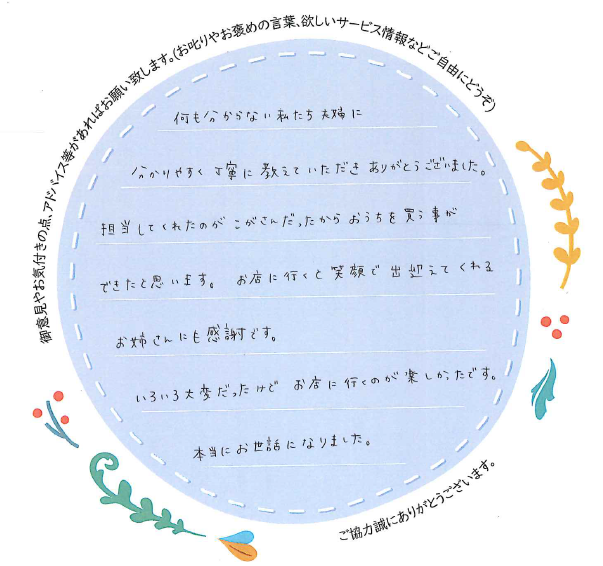 御意見やお気付きの点、アドバイス等があればお願い致します。(お叱りやお褒めの言葉、欲しいサービス情報などご自由にどうぞ)
何も分からない私たち夫婦に
分かりやすく丁寧に教えていただきありがとうございました。
担当してくれたのがこがさんだったからおうちを買う事が
できたと思います。 お店に行くと笑顔で出迎えてくれる
お姉さんにも感謝です。
いろいろ大変だったけど お店に行くのが楽しかったです。
本当にお世話になりました。
ご協力誠にありがとうございます。